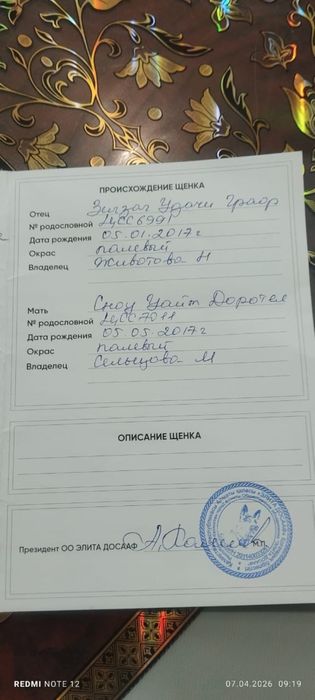 ПРОИСХОЖДЕНИЕ ЩЕНКА
Отец Зигзаг Удачи Граф
№ родословной ЦСС6991
Дата рождения 05.01.2017г
Окрас палевый
Владелец Животова Н
Мать Сноу Уайт Доротея
№ родословной ЦСС7011
Дата рождения 05 05.2017г
Окрас палевый
Владелец Сельцова М
ОПИСАНИЕ ЩЕНКА
Президент ОО ЭЛИТА ДОСААФ
мп
REDMI NOTE 12
07.04.2026 09:19